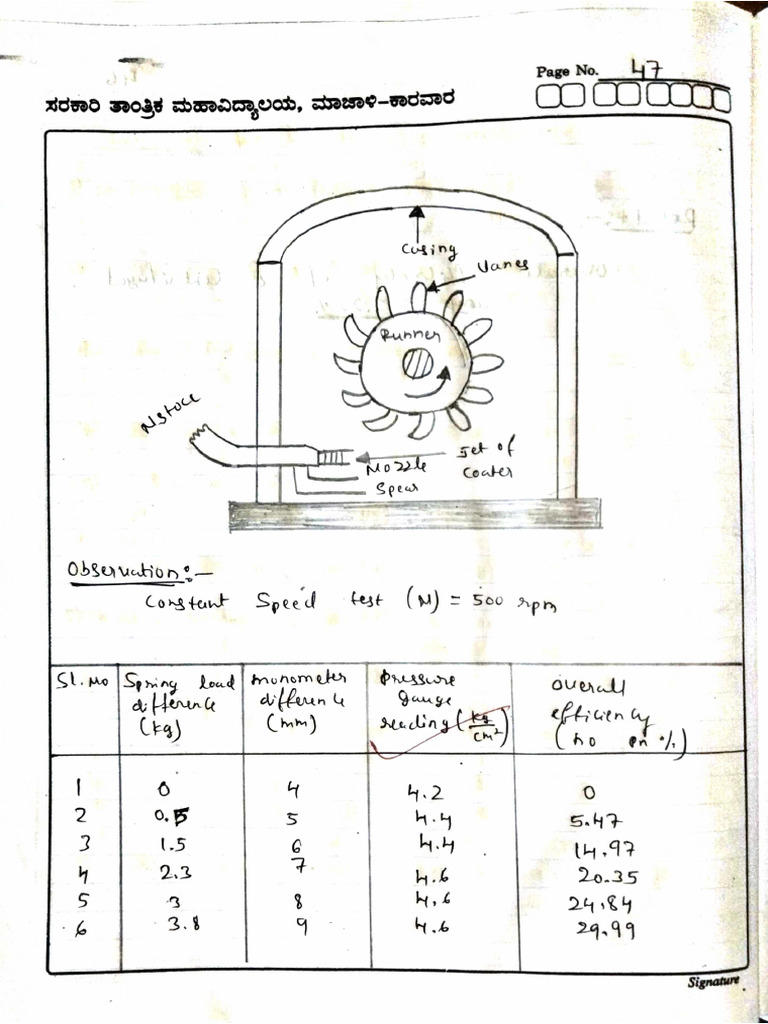 Page No. 47
ಸರಕಾರಿ ತಾಂತ್ರಿಕ ಮಹಾವಿದ್ಯಾಲಯ, ಮಾಜಾಳಿ-ಕಾರವಾರ
Casing
Vanes
Runner
Set of
Nozzle
Spear
Observation:-
Constant Speed test (N) = 500 rpm
Sl.No Spring load monometer pressure overall
difference difference gauge efficiency
(kg) (mm) reading (kg/cm²) (no in %)
1 0 4 4.2 0
2 0.5 5 4.4 5.47
3 1.5 6 4.4 14.97
4 2.3 7 4.6 20.35
5 3 8 4.6 24.84
6 3.8 9 4.6 29.99
Signature